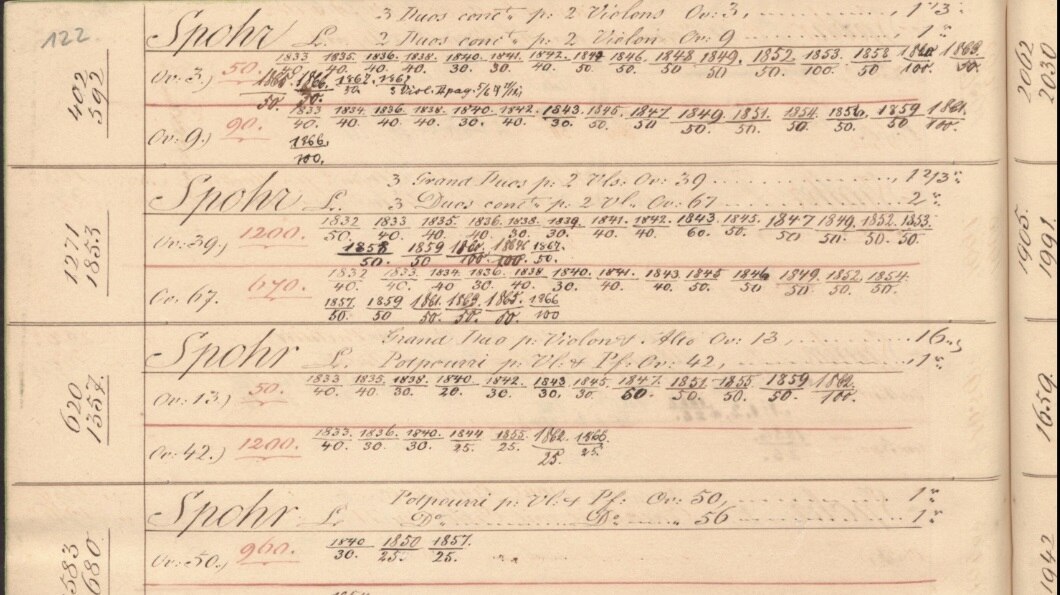 122
3 Duos conct. p: 2 Violons Ov: 3,
Spohr L. 2 Duos conct. p: 2 Violon Ov: 9
402
592
Ov: 3,) 50. 1833 1835. 1836. 1838. 1840. 1841. 1842. 1844 1846. 1848 1849. 1852. 1853. 1858
40. 40. 30. 30. 40. 50. 50. 50 50 50. 100. 50 100. 50.
1866. 1867.
50. 50. 50.
Ov: 9.) 90. 1833 1834. 1836. 1838. 1840. 1842. 1843. 1845. 1847. 1849. 1851. 1854. 1856. 1859 1861.
40. 40. 40. 40. 30. 40. 30. 50. 50 50. 50. 50. 50. 50 100.
1866.
100.
Spohr L. 3 Grand Duos p: 2 Vls: Ov: 39
3 Duos conct. p: 2 Vl: Ov: 67
1271
1853
Ov: 39.) 1200. 1832 1833 1835. 1836. 1838. 1839. 1841. 1842. 1843 1845. 1847 1849. 1852. 1853.
50. 40. 40. 40. 30. 30. 40. 40. 60. 50. 50 50. 50. 50.
1858 1859 1861. 1864. 1867.
50. 50 100 100. 50.
Ov: 67. 670. 1832 1833. 1834. 1836. 1838 1840. 1841. 1843. 1845 1846 1849. 1852. 1854.
40. 40. 40. 30. 40. 30. 40. 40. 50. 50. 50 50. 50.
1857. 1859 1861. 1863. 1865. 1866
50. 50 50. 50. 100
Grand Duo p: Violon & Alto Ov: 13
Spohr L. Potpourri p: Vl: & Pf: Ov: 42,
620
1357
Ov: 13.) 50. 1833 1835. 1838. 1840. 1842. 1843 1845. 1847. 1851. 1855 1859 1862.
40. 40. 30. 20. 30. 30. 30. 60. 50. 50. 50. 100.
Ov: 42.) 1200. 1833. 1836. 1840. 1844 1855. 1862. 1866
40. 30. 30. 25. 25. 25. 25.
Potpourri p: Vl: & Pf: Ov: 50,
Spohr L. Do Do 56
583
680
Ov: 50.) 960. 1840 1850 1857.
30. 25. 25.
2062
2030
1905.
1991
1659.
1942